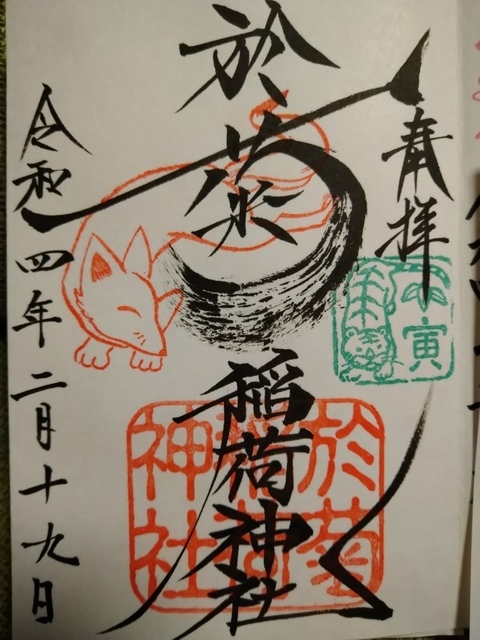 奉拝
於菊稲荷神社
令和四年二月十九日
寅
於菊
稲荷
神社